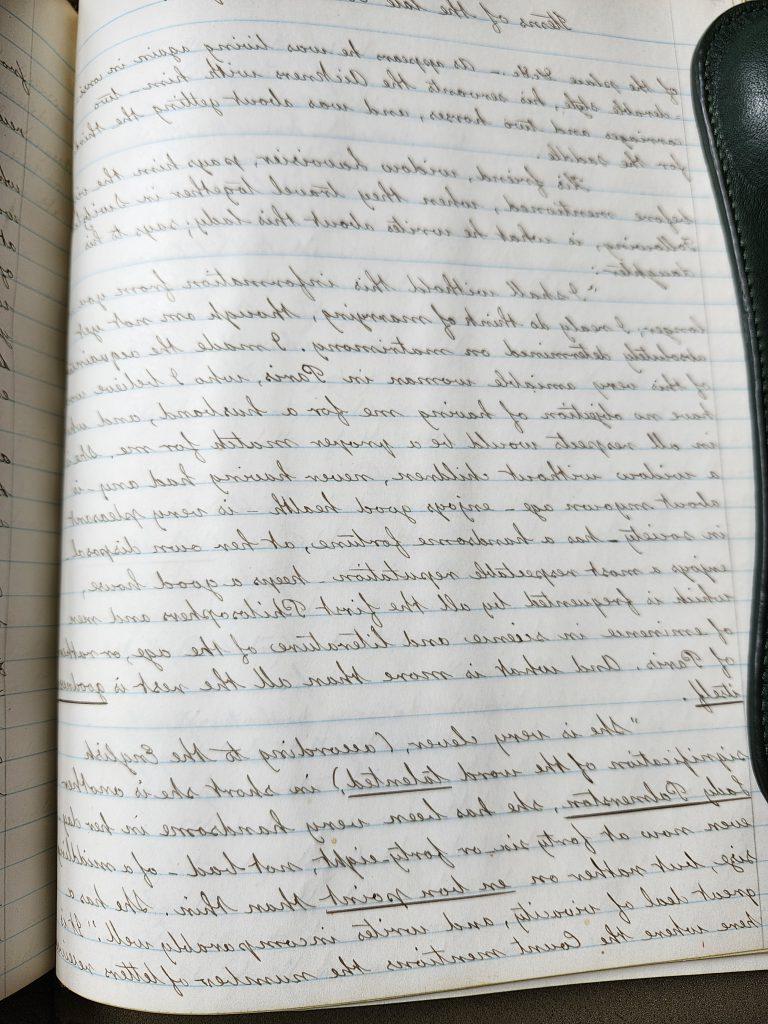 Items of the late
of the palace &c. – As appears he was living again in con-
siderable style, his servants the Aickners with him – two
carriages and two horses, and was about getting the third
for the saddle.
His friend, widow Lavoisier, pays him the
before mentioned, when they travel together in Switz
Following, is what he writes about this lady; says to his
daughter:
"I shall withold this information from you
longer, I realy do think of marrying, though am not yet
absolutely determined on matrimony. I made the acquain
of this very amiable woman in Paris, who I believe w
have no objection of having me for a husband, and wh
in all respects would be a proper match for me. She is
a widow without children, never having had any – is
about my own age – enjoys good health – is very pleasant
in society – has a handsome fortune, at her own disposal
enjoys a most respectable reputation keeps a good house,
which is frequented by all the first Philosophers and men
of eminence in science and literature of the age, or rather
of Paris. And what is more than all the rest is goodness
itself.
"She is very clever, (according to the English
signification of the word talented,) in short she is another
Lady Palmerston, she has been very handsome in her day
even now at forty six or forty-eight, not bad – of a middling
size, but rather on en bon point than thin. She has a
great deal of vivacity, and writes incomparably well." It is
here where the Count mentions the number of letters receiv